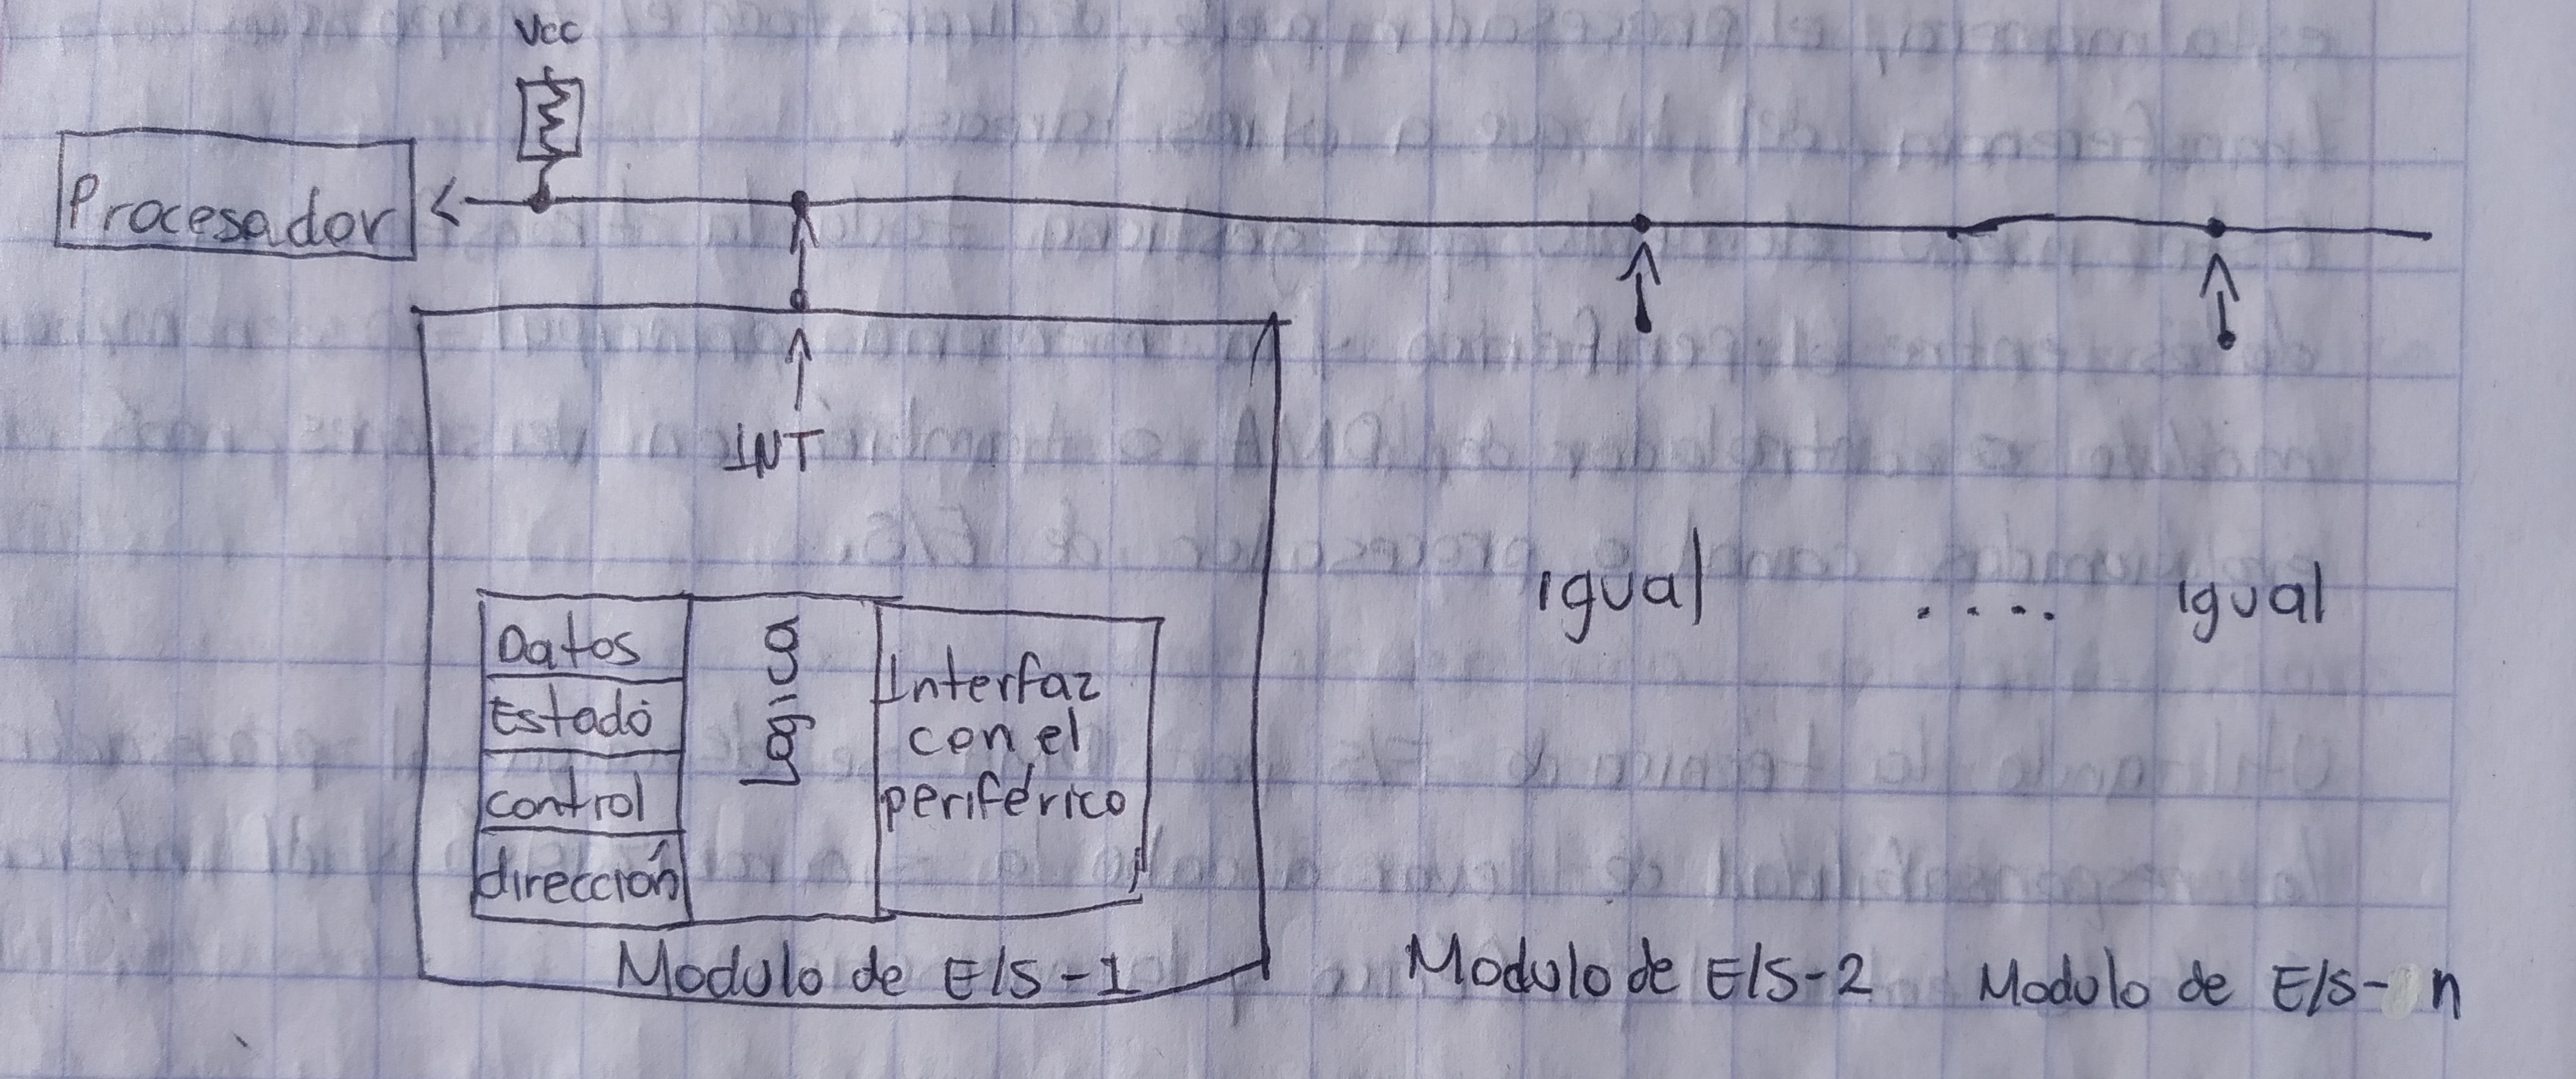 Vcc
Procesador
INT
Datos
Estado
control
dirección
Logica
Interfaz
con el
periférico
igual .... igual
Modulo de E/S-1
Modulo de E/S-2
Modulo de E/S- n